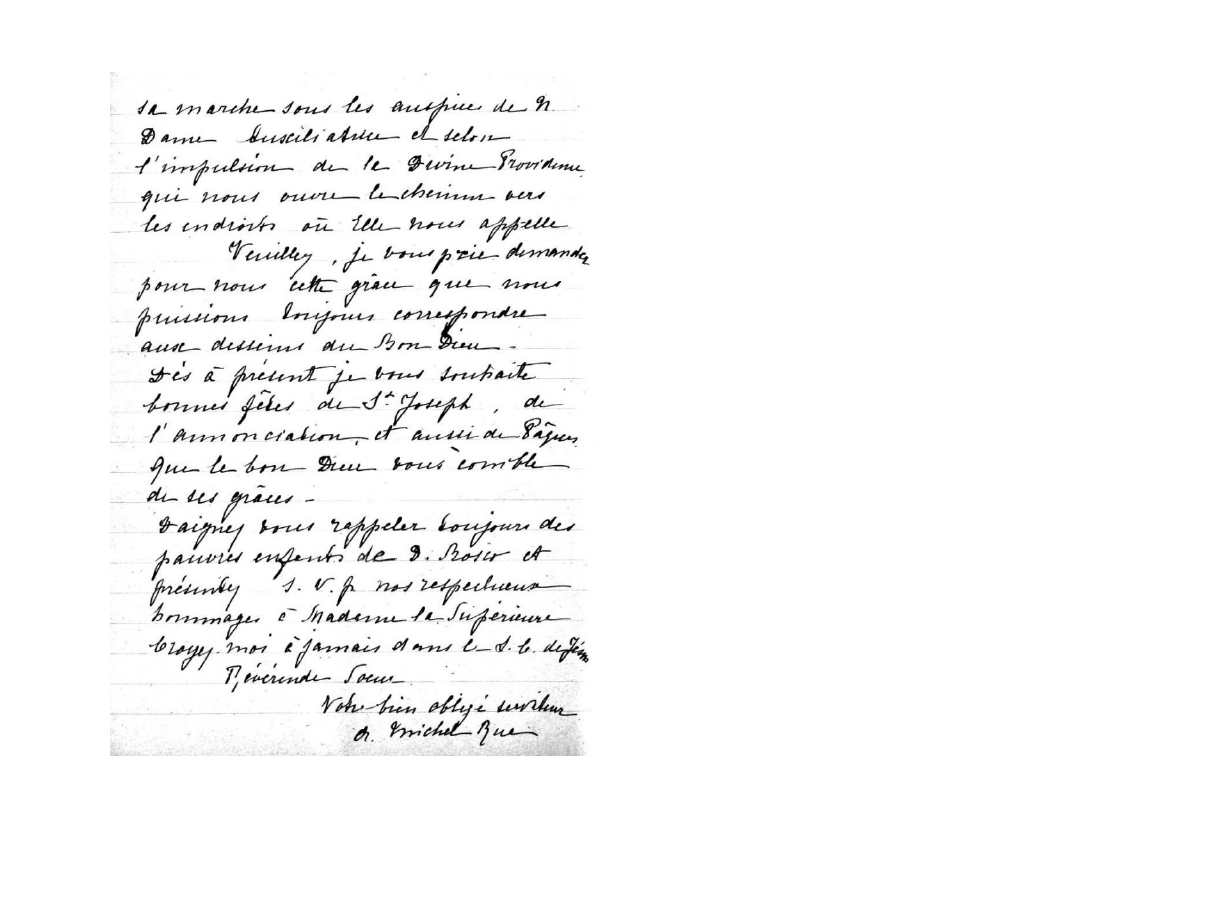 sa marche sous les auspices de N.
Dame Auxiliatrice et selon
l'impulsion de la Divine Providence
qui nous ouvre le chemin vers
les endroits où Elle nous appelle
Veuillez, je vous prie demander
pour nous cette grâce que nous
puissions toujours correspondre
aux desseins du Bon Dieu -
Dés à présent je vous souhaite
bonnes fêtes de St Joseph, de
l'annonciation, et aussi de Pâques
que le bon Dieu vous comble
de ses grâces -
Daignez vous rappeler toujours des
pauvres enfants de D. Bosco et
présentez S. V. p. nos respectueux
hommages à Madame la Supérieure
Croyez moi à jamais dans le S. C. de Jésus
Révérende Soeur
Votre bien obligé serviteur
Michel Rua